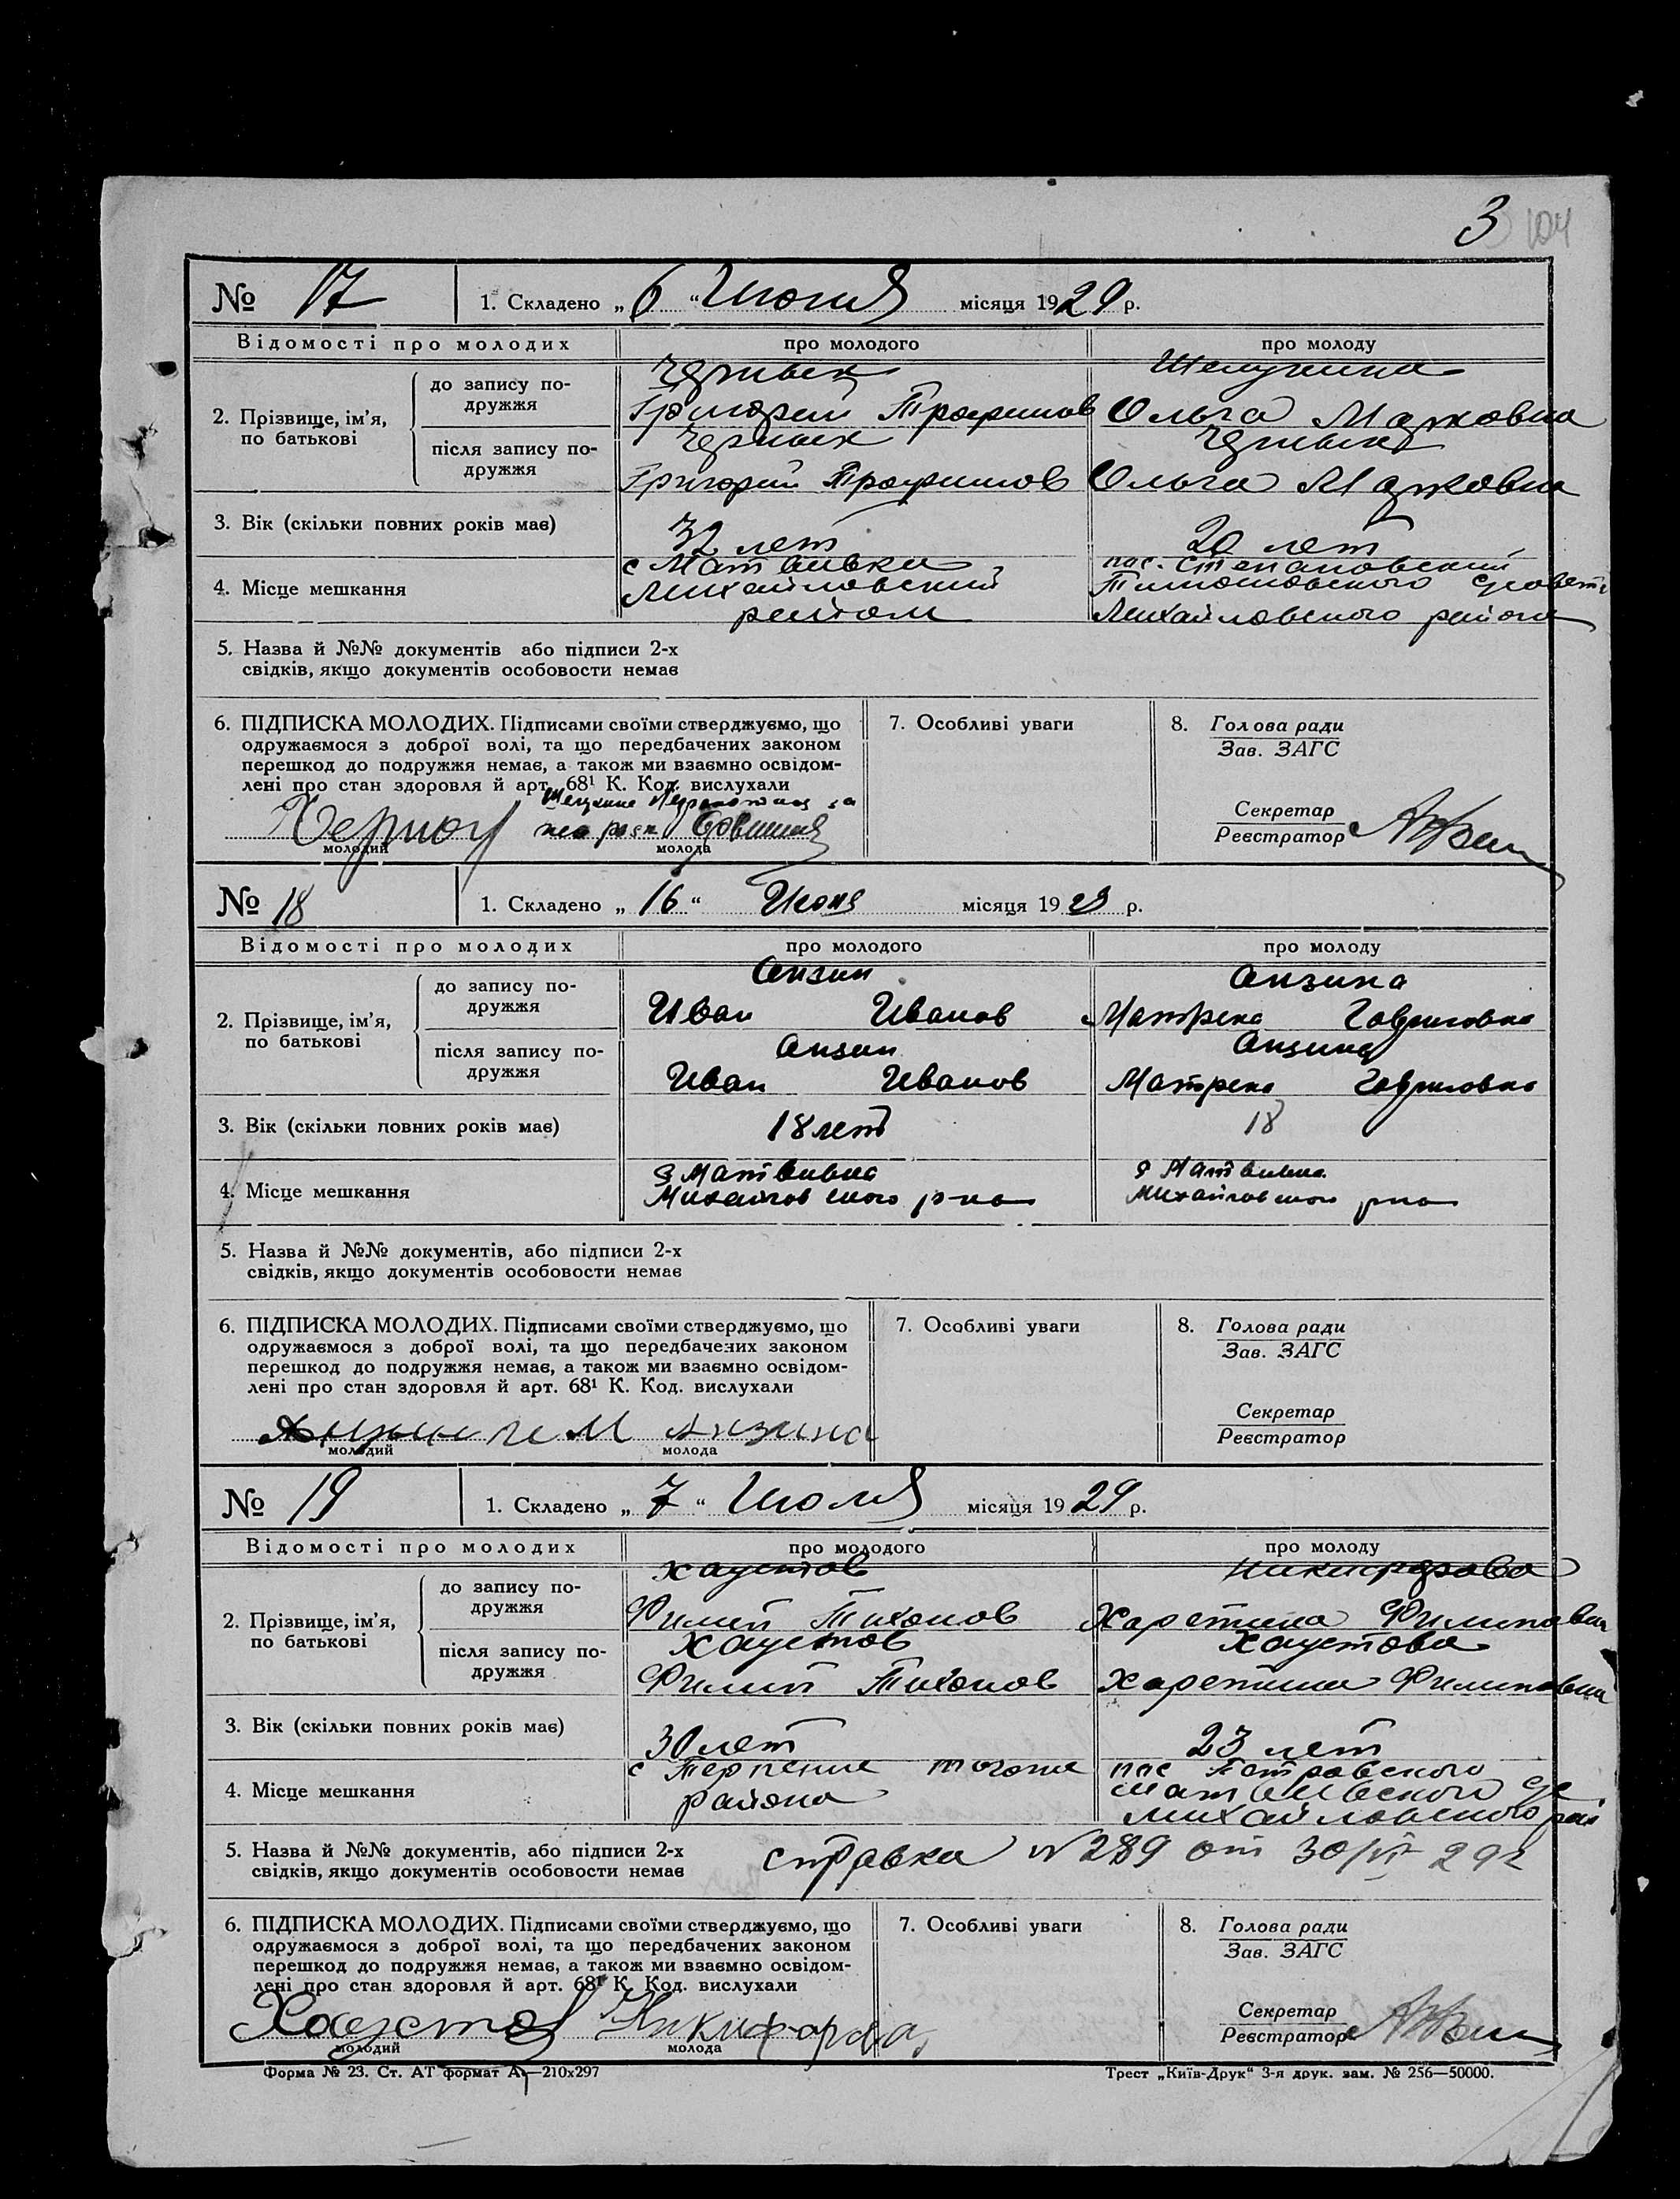 3 104
№ 17 1. Складено „ 6 “ Июня місяця 1929 р.
Відомості про молодих про молодого про молоду
2. Прізвище, ім’я, по батькові
до запису по-
дружжя
Григорий Трофимов Ольга Марковна
після запису по-
дружжя
Григорий Трофимов Ольга Марковна
3. Вік (скільки повних років має) 32 лет 20 лет
4. Місце мешкання
с Матвивка пос. Степановский
Михайловский
район Михайловского района
5. Назва й №№ документів або підписи 2-х
свідків, якщо документів особовости немає
6. ПІДПИСКА МОЛОДИХ. Підписами своїми стверджуємо, що
одружаємося з доброї волі, та що передбачених законом
перешкод до подружжя немає, а також ми взаємно освідом-
лені про стан здоровля й арт. 68¹ К. Код. вислухали
молодий молода
7. Особливі уваги
8. Голова ради
Зав. ЗАГС
Секретар
Реєстратор
№ 18 1. Складено „ 16 “ Июня місяця 1929 р.
Відомості про молодих про молодого про молоду
2. Прізвище, ім’я, по батькові
до запису по-
дружжя
Анзин Анзина
Иван Иванов Матрена Гавриловна
після запису по-
дружжя
Анзин Анзина
Иван Иванов Матрена Гавриловна
3. Вік (скільки повних років має) 18 лет 18
4. Місце мешкання
Михайловского р-на Михайловского р-на
5. Назва й №№ документів, або підписи 2-х
свідків, якщо документів особовости немає
6. ПІДПИСКА МОЛОДИХ. Підписами своїми стверджуємо, що
одружаємося з доброї волі, та що передбачених законом
перешкод до подружжя немає, а також ми взаємно освідом-
лені про стан здоровля й арт. 68¹ К. Код. вислухали
Анзина
молодий молода
7. Особливі уваги
8. Голова ради
Зав. ЗАГС
Секретар
Реєстратор
№ 19 1. Складено „ 7 “ Июля місяця 1929 р.
Відомості про молодих про молодого про молоду
2. Прізвище, ім’я, по батькові
до запису по-
дружжя
Хаустов Никифорова
Филип Тихонов Харетина Филиповна
після запису по-
дружжя
Хаустов Хаустова
Филип Тихонов Харетина Филиповна
3. Вік (скільки повних років має) 30 лет 23 лет
4. Місце мешкання
с Терпение тогоже пос Петровского
района Матвивского с/с
Михайловского рай
5. Назва й №№ документів, або підписи 2-х
свідків, якщо документів особовости немає
справка № 289 от 30/VI 29 г
6. ПІДПИСКА МОЛОДИХ. Підписами своїми стверджуємо, що
одружаємося з доброї волі, та що передбачених законом
перешкод до подружжя немає, а також ми взаємно освідом-
лені про стан здоровля й арт. 68¹ К. Код. вислухали
Хаустов Никифорова
молодий молода
7. Особливі уваги
8. Голова ради
Зав. ЗАГС
Секретар
Реєстратор
Форма № 23. Ст. АТ формат А₄—210х297 Трест „Київ-Друк“ 3-я друк. зам. № 256—50000.